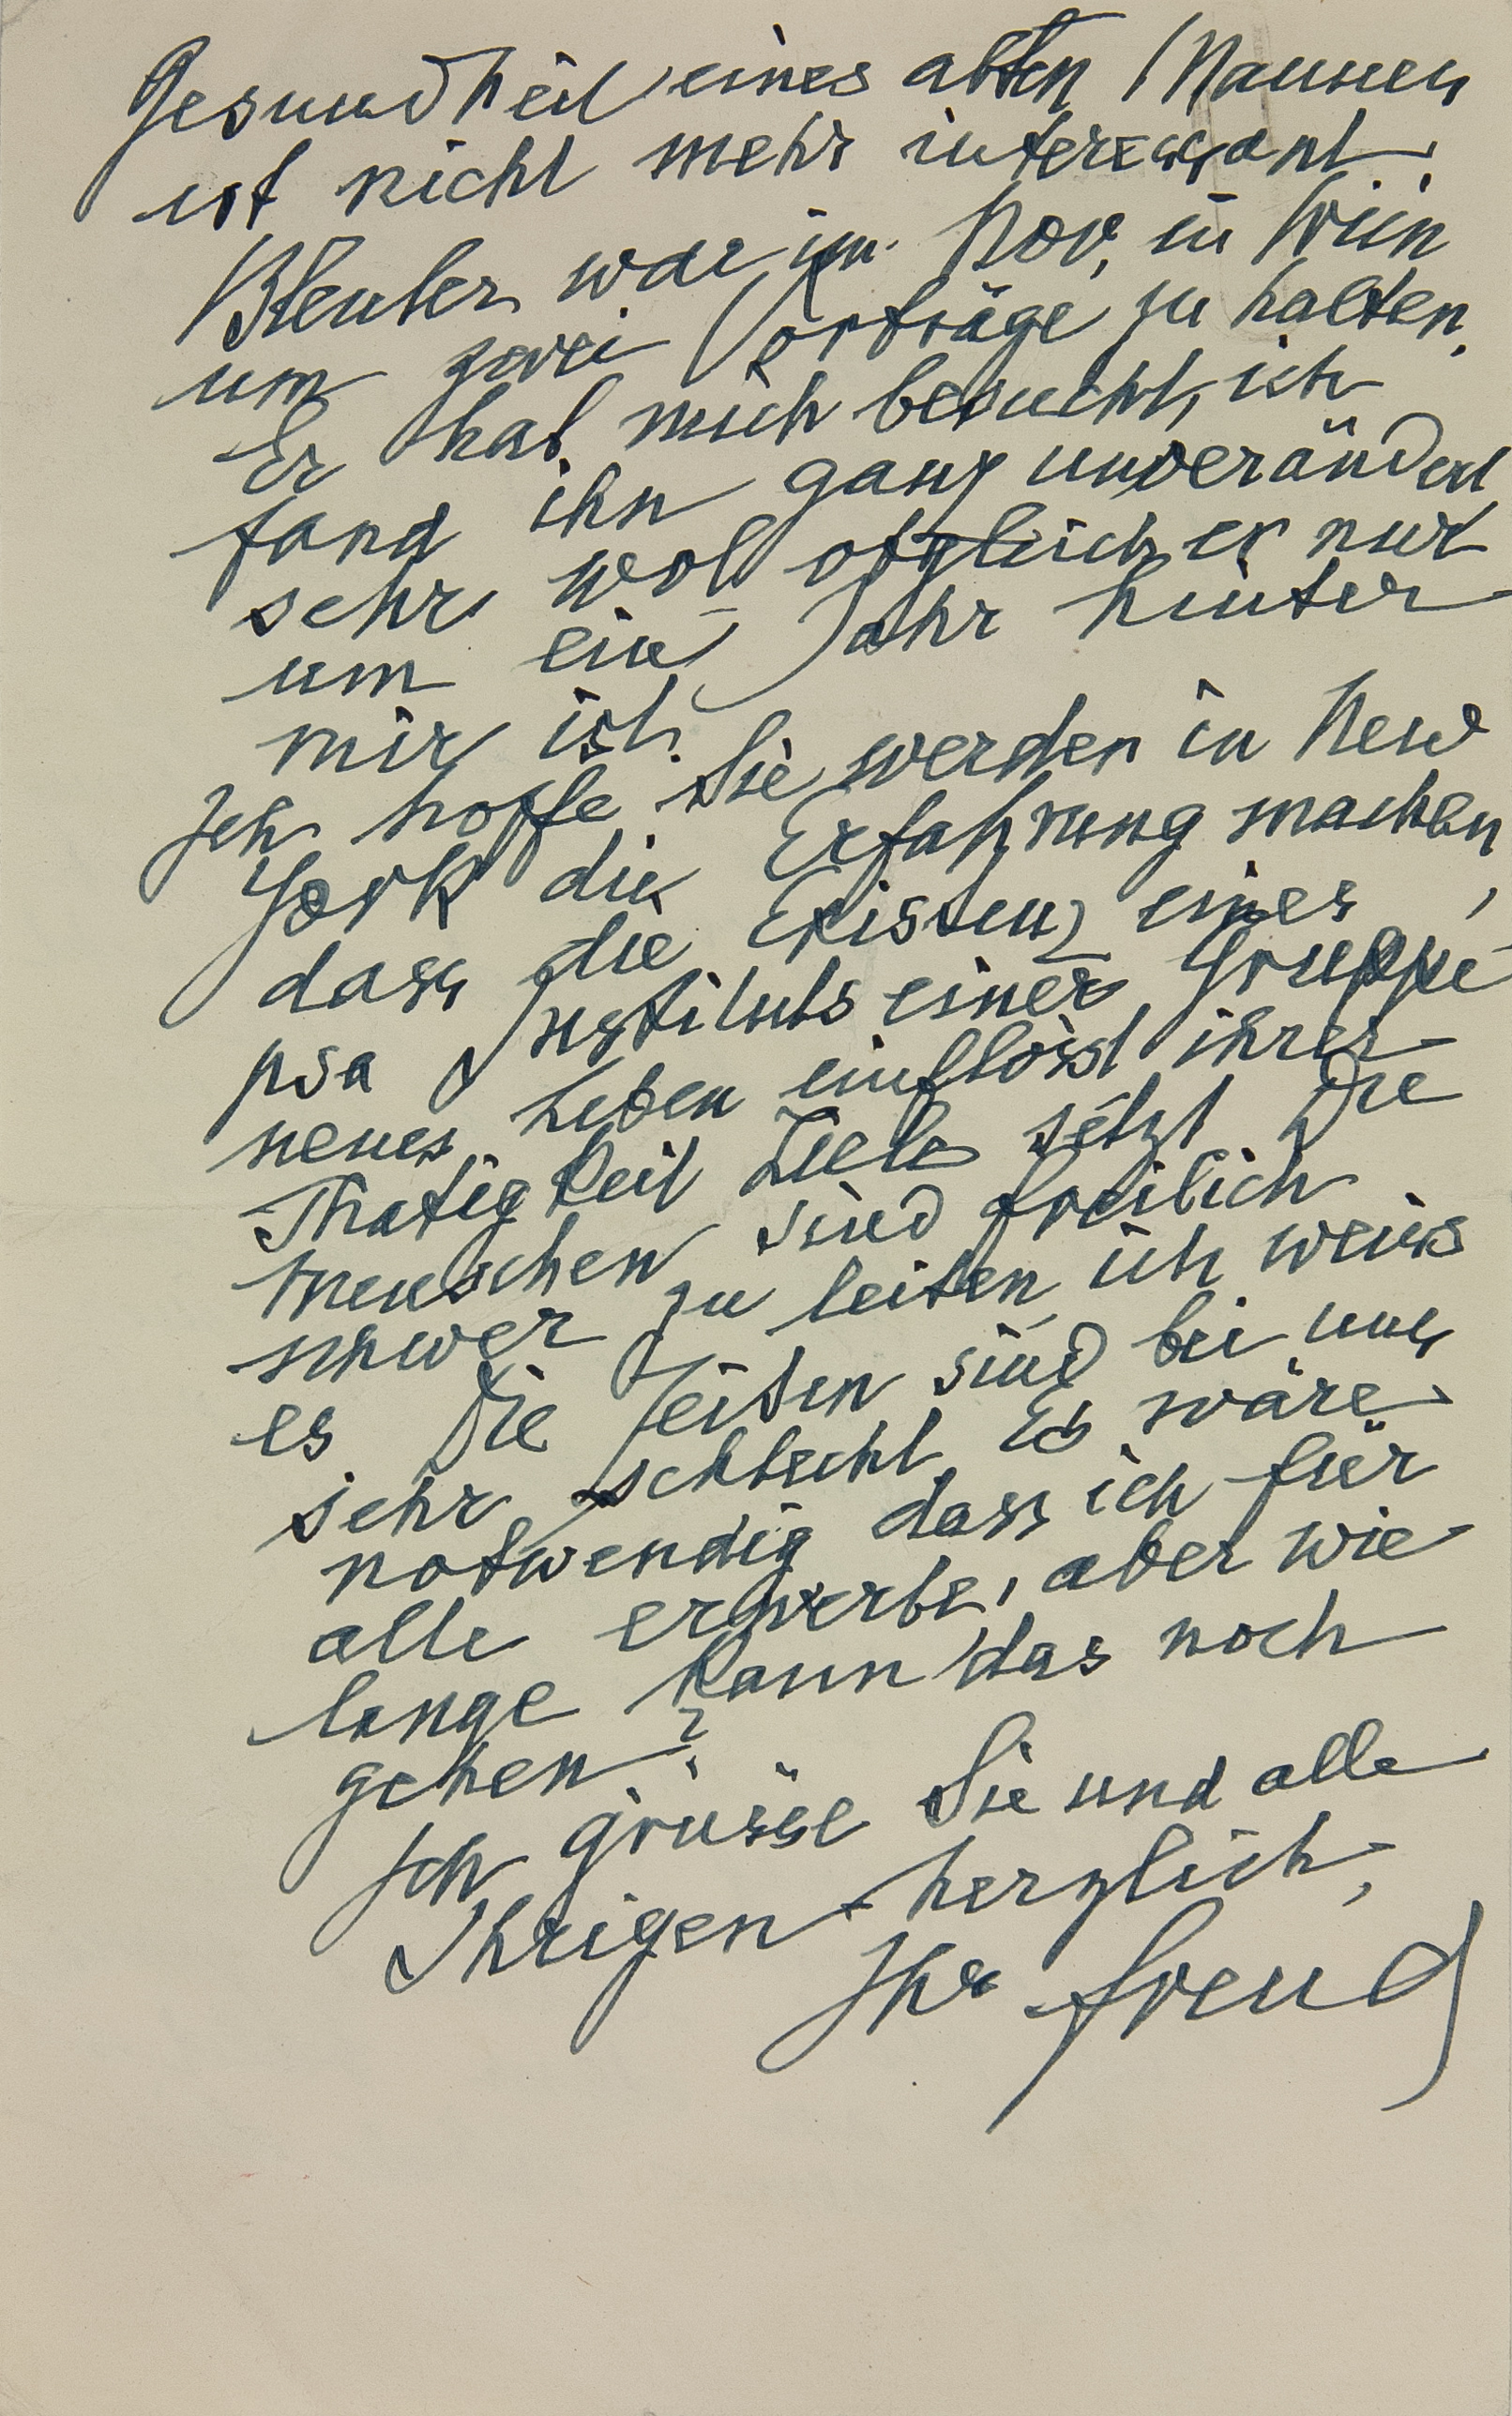 Gesundheit eines alten Mannes
ist nicht mehr interessant.
Bleuler war im Nov. in Wien
um zwei Vorträge zu halten.
Er hat mich besucht, ich
fand ihn ganz unverändert
sehr wol obgleich er nur
um ein Jahr hinter
mir ist.
Ich hoffe Sie werden in New
York die Erfahrung machen,
dass die Existenz eines
psa Instituts einer Gruppe
neues Leben einflösst ihrer
Thatigkeit Ziele setzt Die
Menschen sind freilich
schwer zu leiten, ich weiss
es Die Zeiten sind bei uns
sehr schlecht Es wäre
notwendig dass ich für
alle erwerbe, aber wie
lange kann das noch
gehen?
Ich grüsse Sie und alle
Ihrigen herzlich,
Ihr Freud